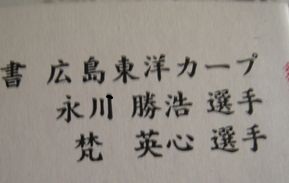 書 広島東洋カープ
永川 勝浩 選手
梵 英心 選手